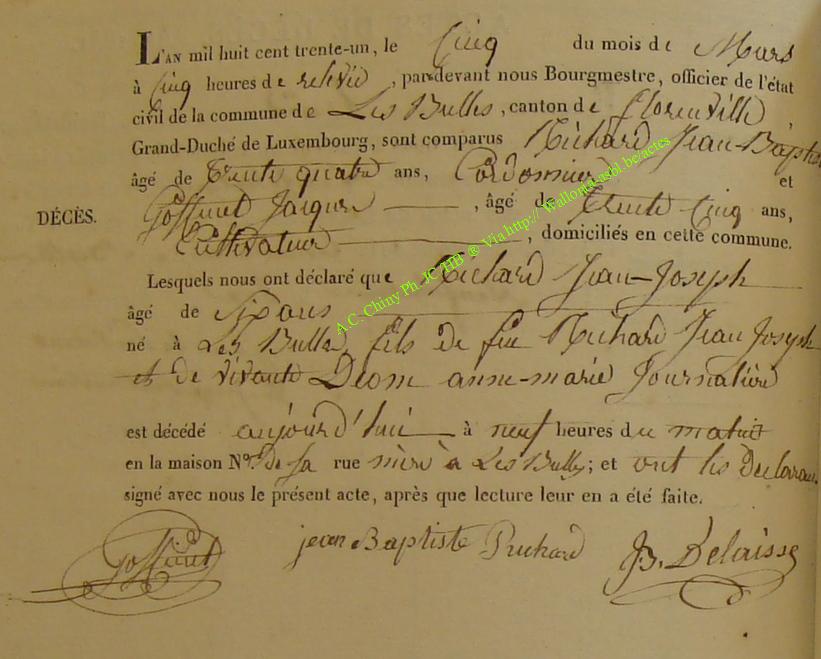 L'AN mil huit cent trente-un, le Cinq du mois de Mars
à Cinq heures de relevée, pardevant nous Bourgmestre, officier de l'état
civil de la commune de Les Bulles, canton de florenville,
Grand-Duché de Luxembourg, sont comparus Richard Jean-Baptiste
âgé de trente quatre ans, Cordonnier et
DÉCÈS.
Goffinet Jacques, âgé de trente Cinq ans,
Cultivateur, domiciliés en cette commune.
Lesquels nous ont déclaré que Richard Jean-Joseph
âgé de Six ans
né à Les Bulles fils de feu Richard Jean Joseph
et de vivante Déom anne-marie Journalière
est décédé aujourd'hui à neuf heures du matin
en la maison N.º de sa rue mère à Les Bulles; et ont les Déclarans
signé avec nous le présent acte, après que lecture leur en a été faite.
Goffinet jean Baptiste Richard JB. Delaisse
A.C. Chiny Ph. JC THB ® Via http:// Wallonia-asbl.be/actes